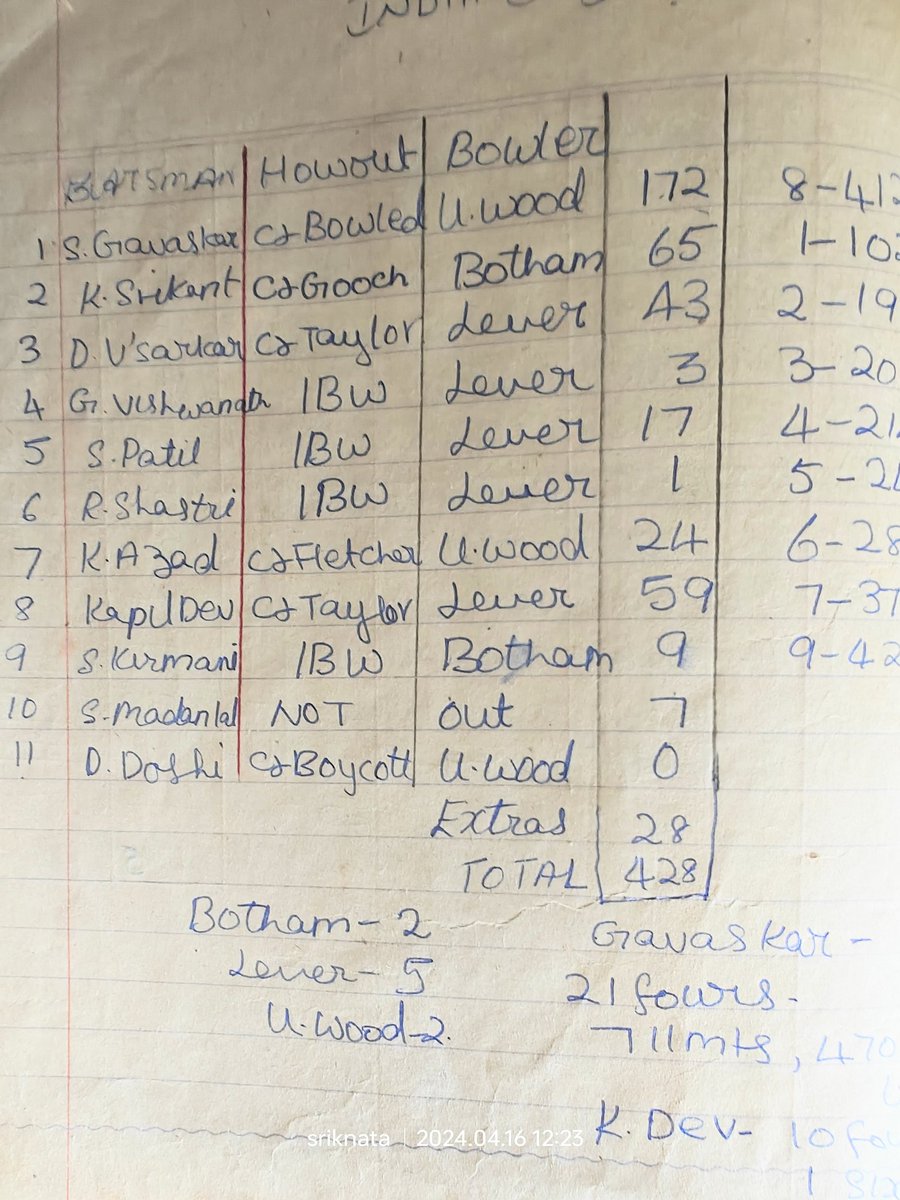 BATSMAN Howout Bowler
1 S. Gavaskar C&Bowled U.wood 172 8-41
2 K. Srikant C&Gooch Botham 65 1-10
3 D. V'sarkar C&Taylor Lever 43 2-19
4 G. Vishwanath lBW Lever 3 3-20
5 S. Patil lBW Lever 17 4-21
6 R. Shastri lBW Lever 1 5-2
7 K. Azad C&Fletcher U.wood 24 6-28
8 Kapil Dev C&Taylor Lever 59 7-37
9 S. Kirmani lBW Botham 9 9-42
10 S. Madanlal NOT out 7
11 D. Doshi C&Boycott U.wood 0
Extras 28
TOTAL 428
Botham-2 Gavaskar-
Lever-5 21 fours.
U.Wood-2. 711mts, 470
K. Dev- 10 fo
1 six
sriknata | 2024.04.16 12:23